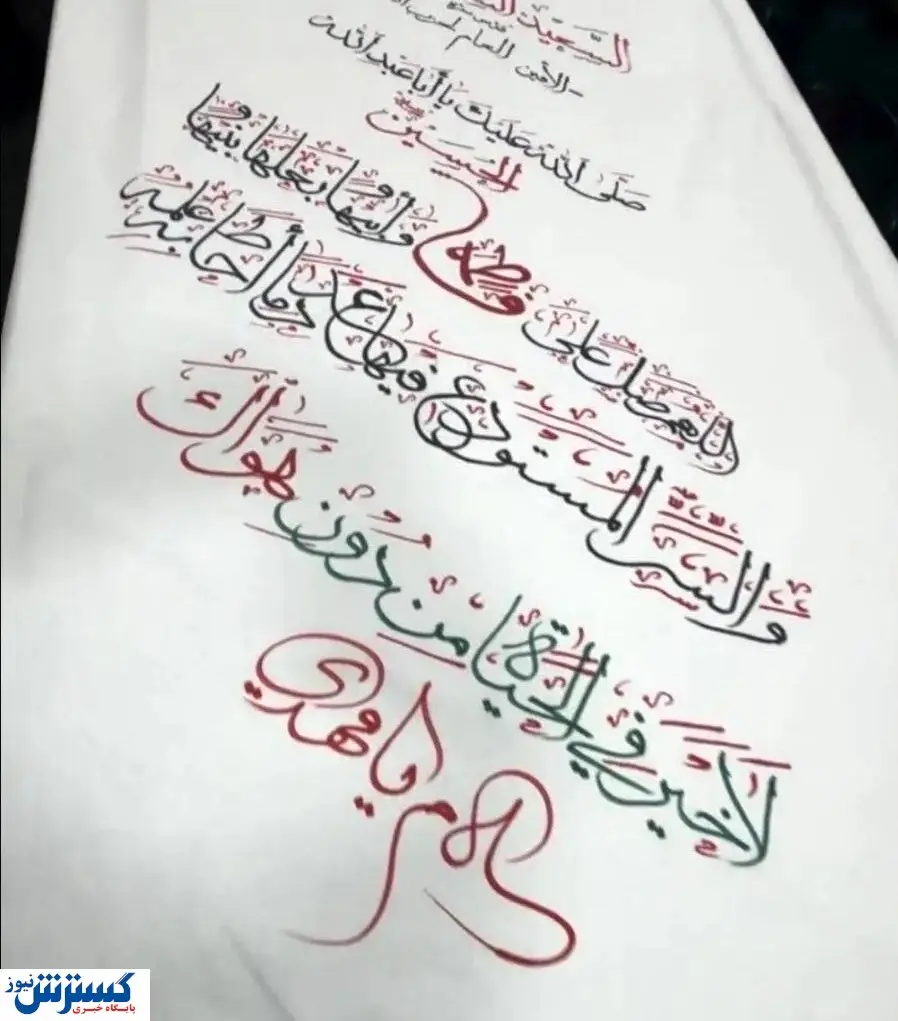 السعيد
الأمين العام لحزب الله
صَلَّى اللهُ عَلَيْكَ يَا أَبَا عَبْدِ اللهِ
الحسين
اللهم صل على فاطمة وأبيها وبعلها وبنيها
والسر المستودع فيها عدد ما أحاط به علمك
لا خير في الحياة من دون هواك
يا مهدي
گسترش نیوز
پایگاه خبری